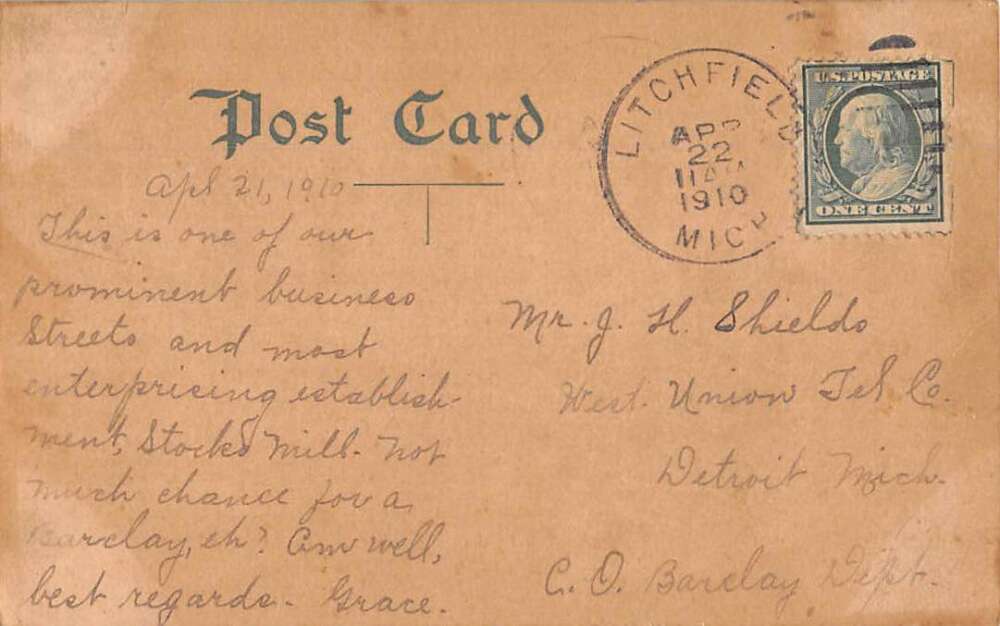 Post Card
LITCHFIELD
APR
22
11 AM
1910
MICH
U.S. POSTAGE
ONE CENT
Apl 21, 1910
This is one of our
prominent business
Streets and most
enterprising establish-
ment, Stocks Mill. Not
much chance for a
Barclay, eh? Am well,
best regards - Grace.
Mr. J. H. Shields
West. Union Tel Co.
Detroit Mich.
C. O. Barclay Dept.